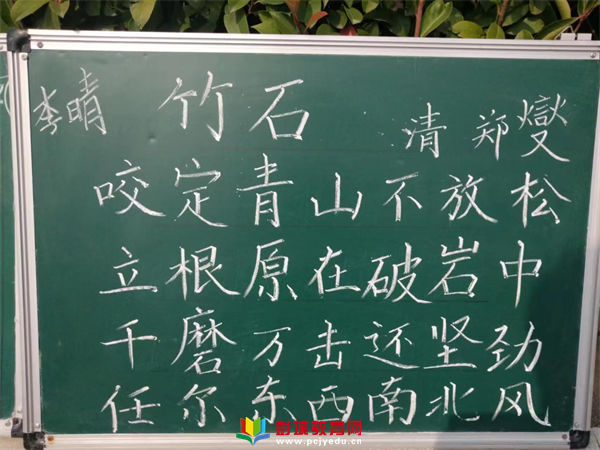 李晴
竹石
清 郑燮
咬定青山不放松
立根原在破岩中
千磨万击还坚劲
任尔东西南北风
彭城教育网
www.pcjyedu.cn